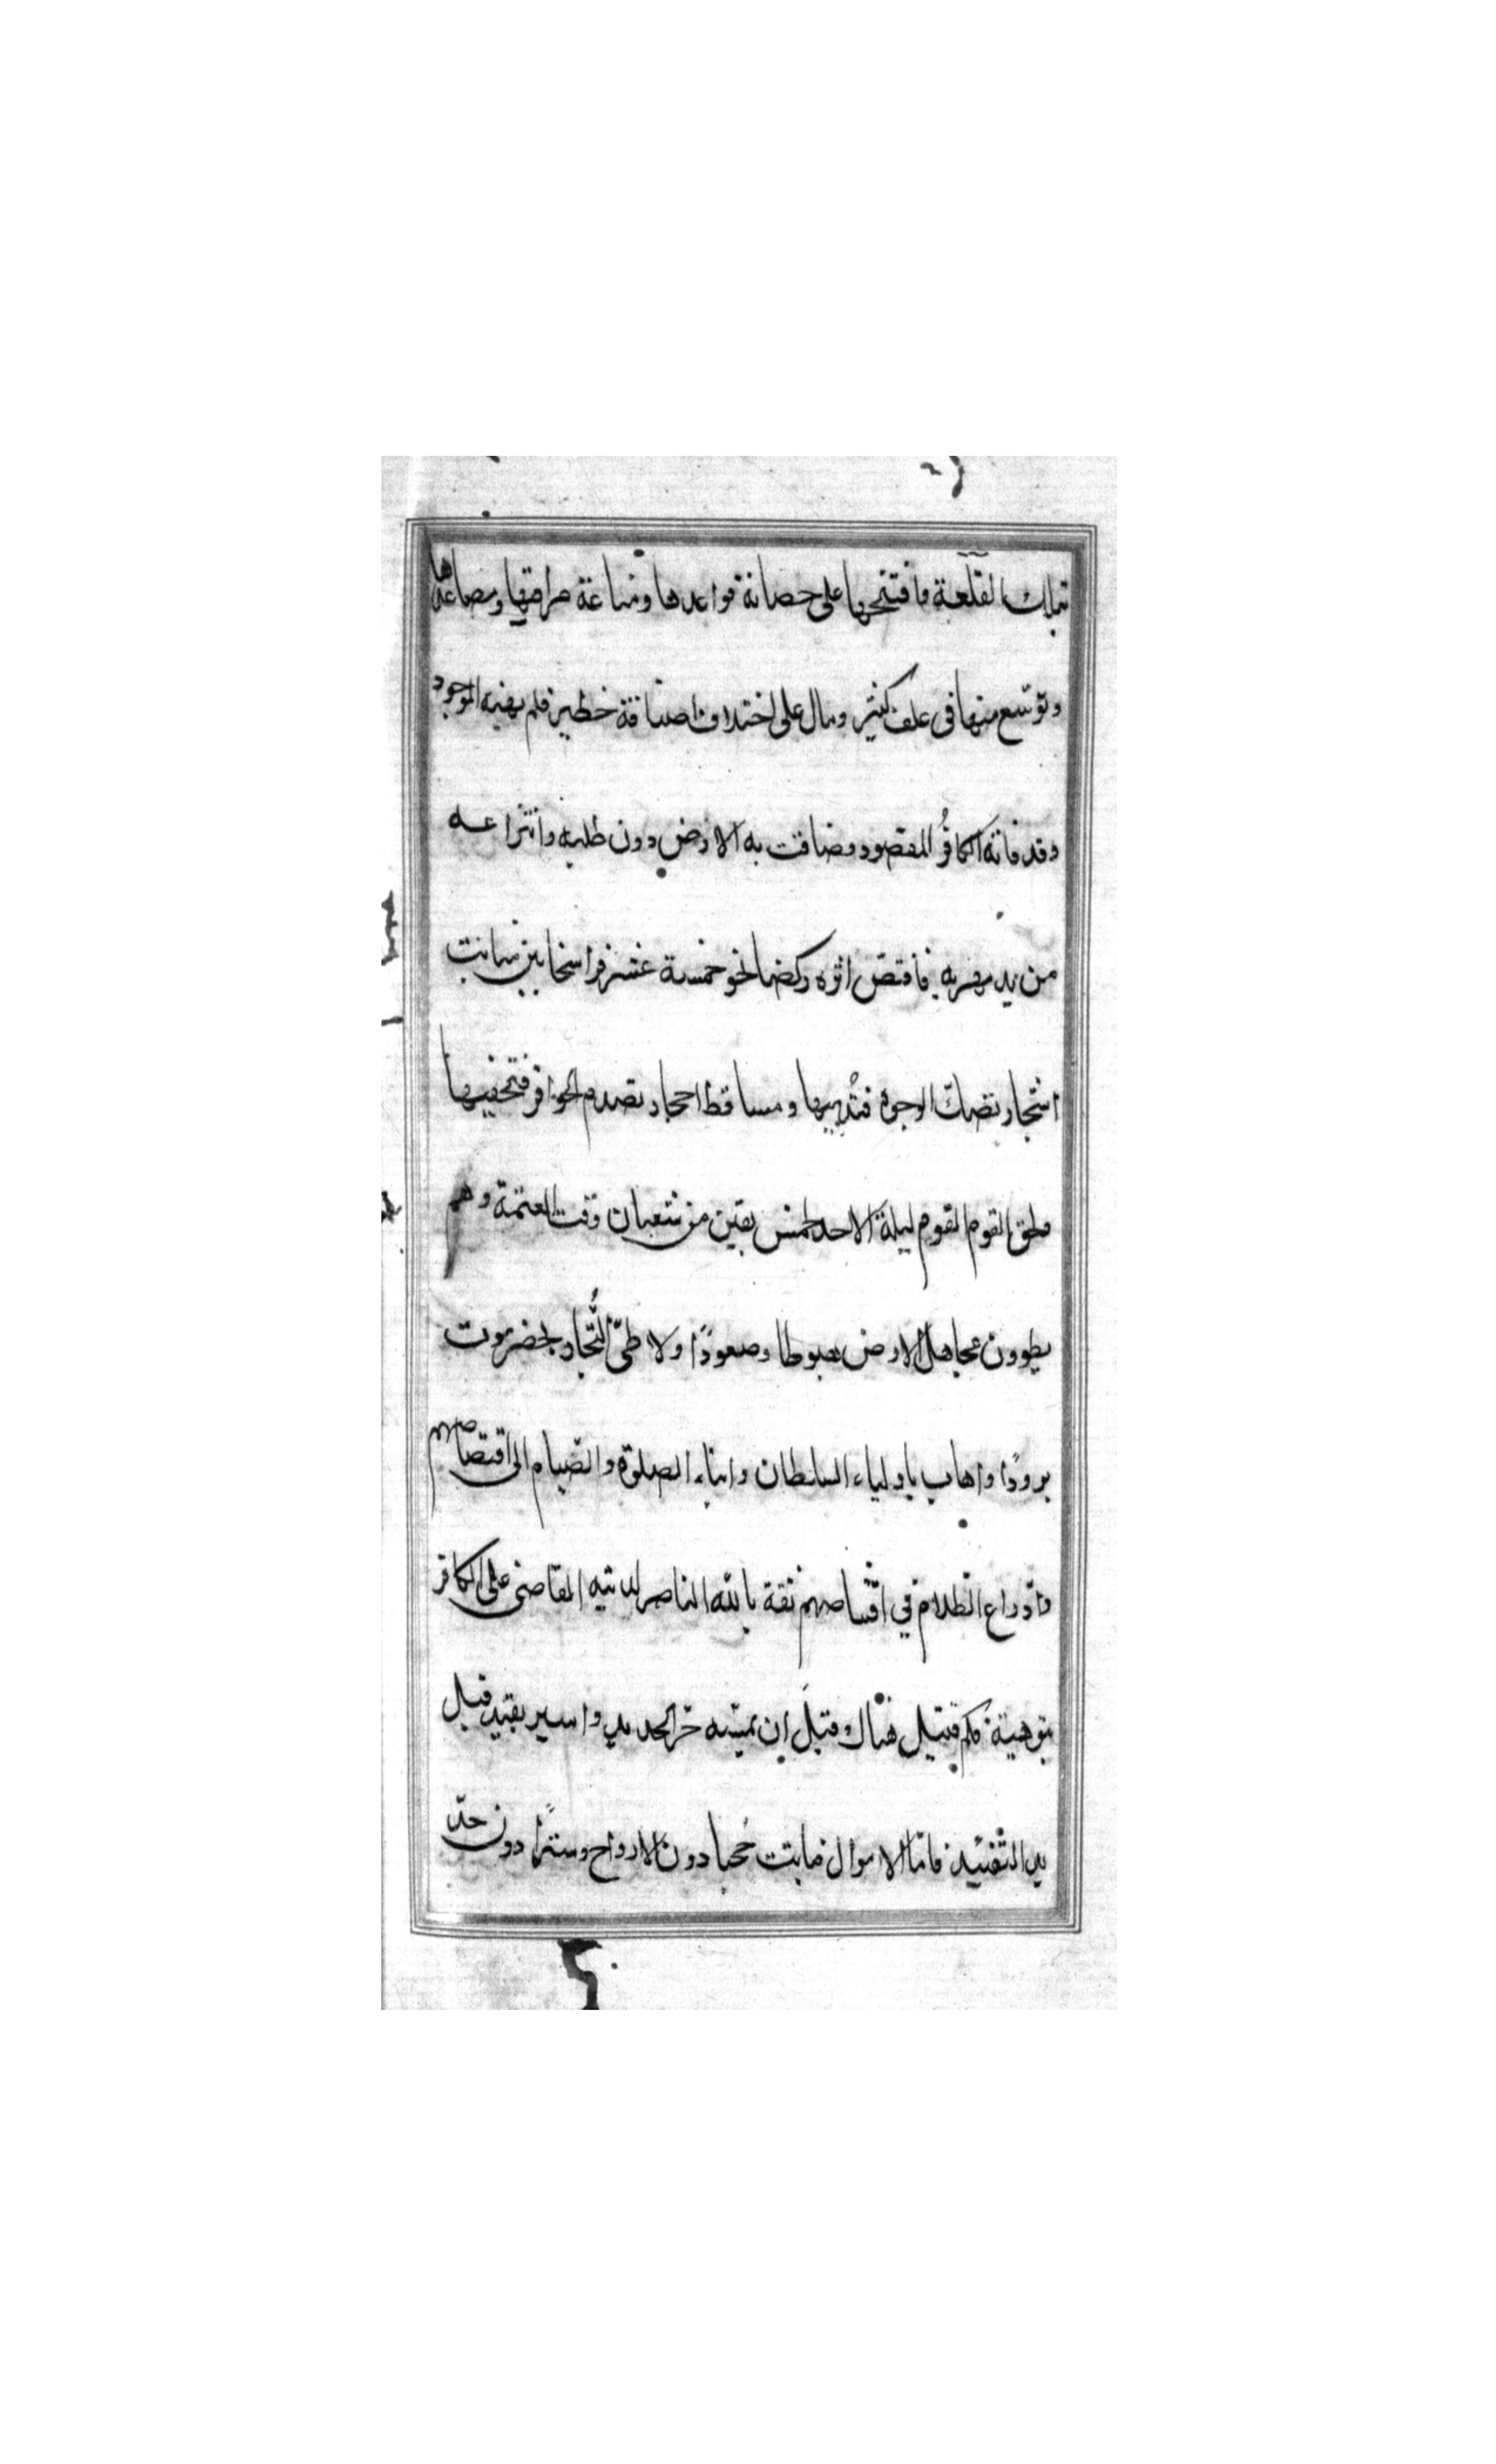 بتلك القلعة فافتتحها على حصانة قواعدها ومناعة مراقيها ومصاعدها
وتوسّع منها في علف كثير ومال على اختلاف اصنافة خطير فلم يهنيه الموجود
وقد فاته الكافُر المقصود وضاقت به الارض دون طلبه وانتزاعه
من يد مهربه فاقتصّ اثره ركضا نحو خمسة عشر فراسخا بين منابت
اشجار تصكّ الوجوه فتُدميها ومساقط احجار تصدم الحوافر فتحفيها
ولحق القوم القوم ليلة الاحد لخمس بقين من شعبان وقت العتمة وهم
يطوون مجاهل الارض هبوطا وصعودًا ولا طىّ التُّجار بحضرموت
برودًا واهاب باولياء السلطان وابناء الصلوة والصّيام الى اقتصاصهم
وادّراع الظلام في اقتناصهم ثقة بالله الناصر لدينه القاضى على الكافر
بتوهينه فكم قتيل هناك قبلَ ان يمسّه حرّ الحديد واسير بقيد قبل
يد التقييد فامّا الاموال فباتت حُجبا دون الارواح وسترًا دون حدّ